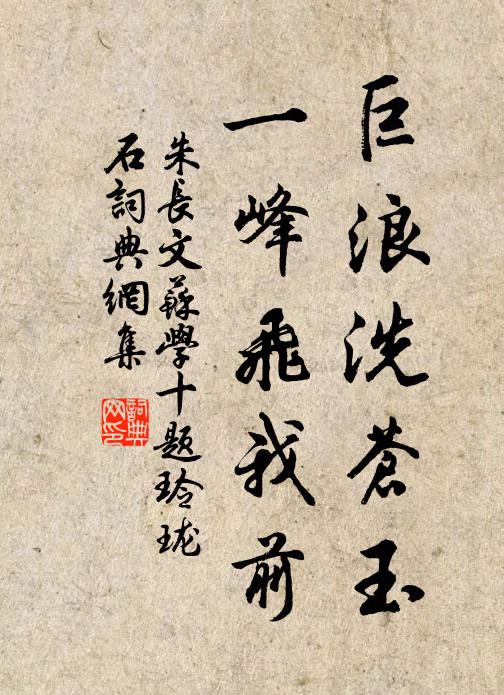 巨浪洗蒼玉
一峰飛我前
朱長文蘇學十題玲珑
石詞典網集
詞典网印